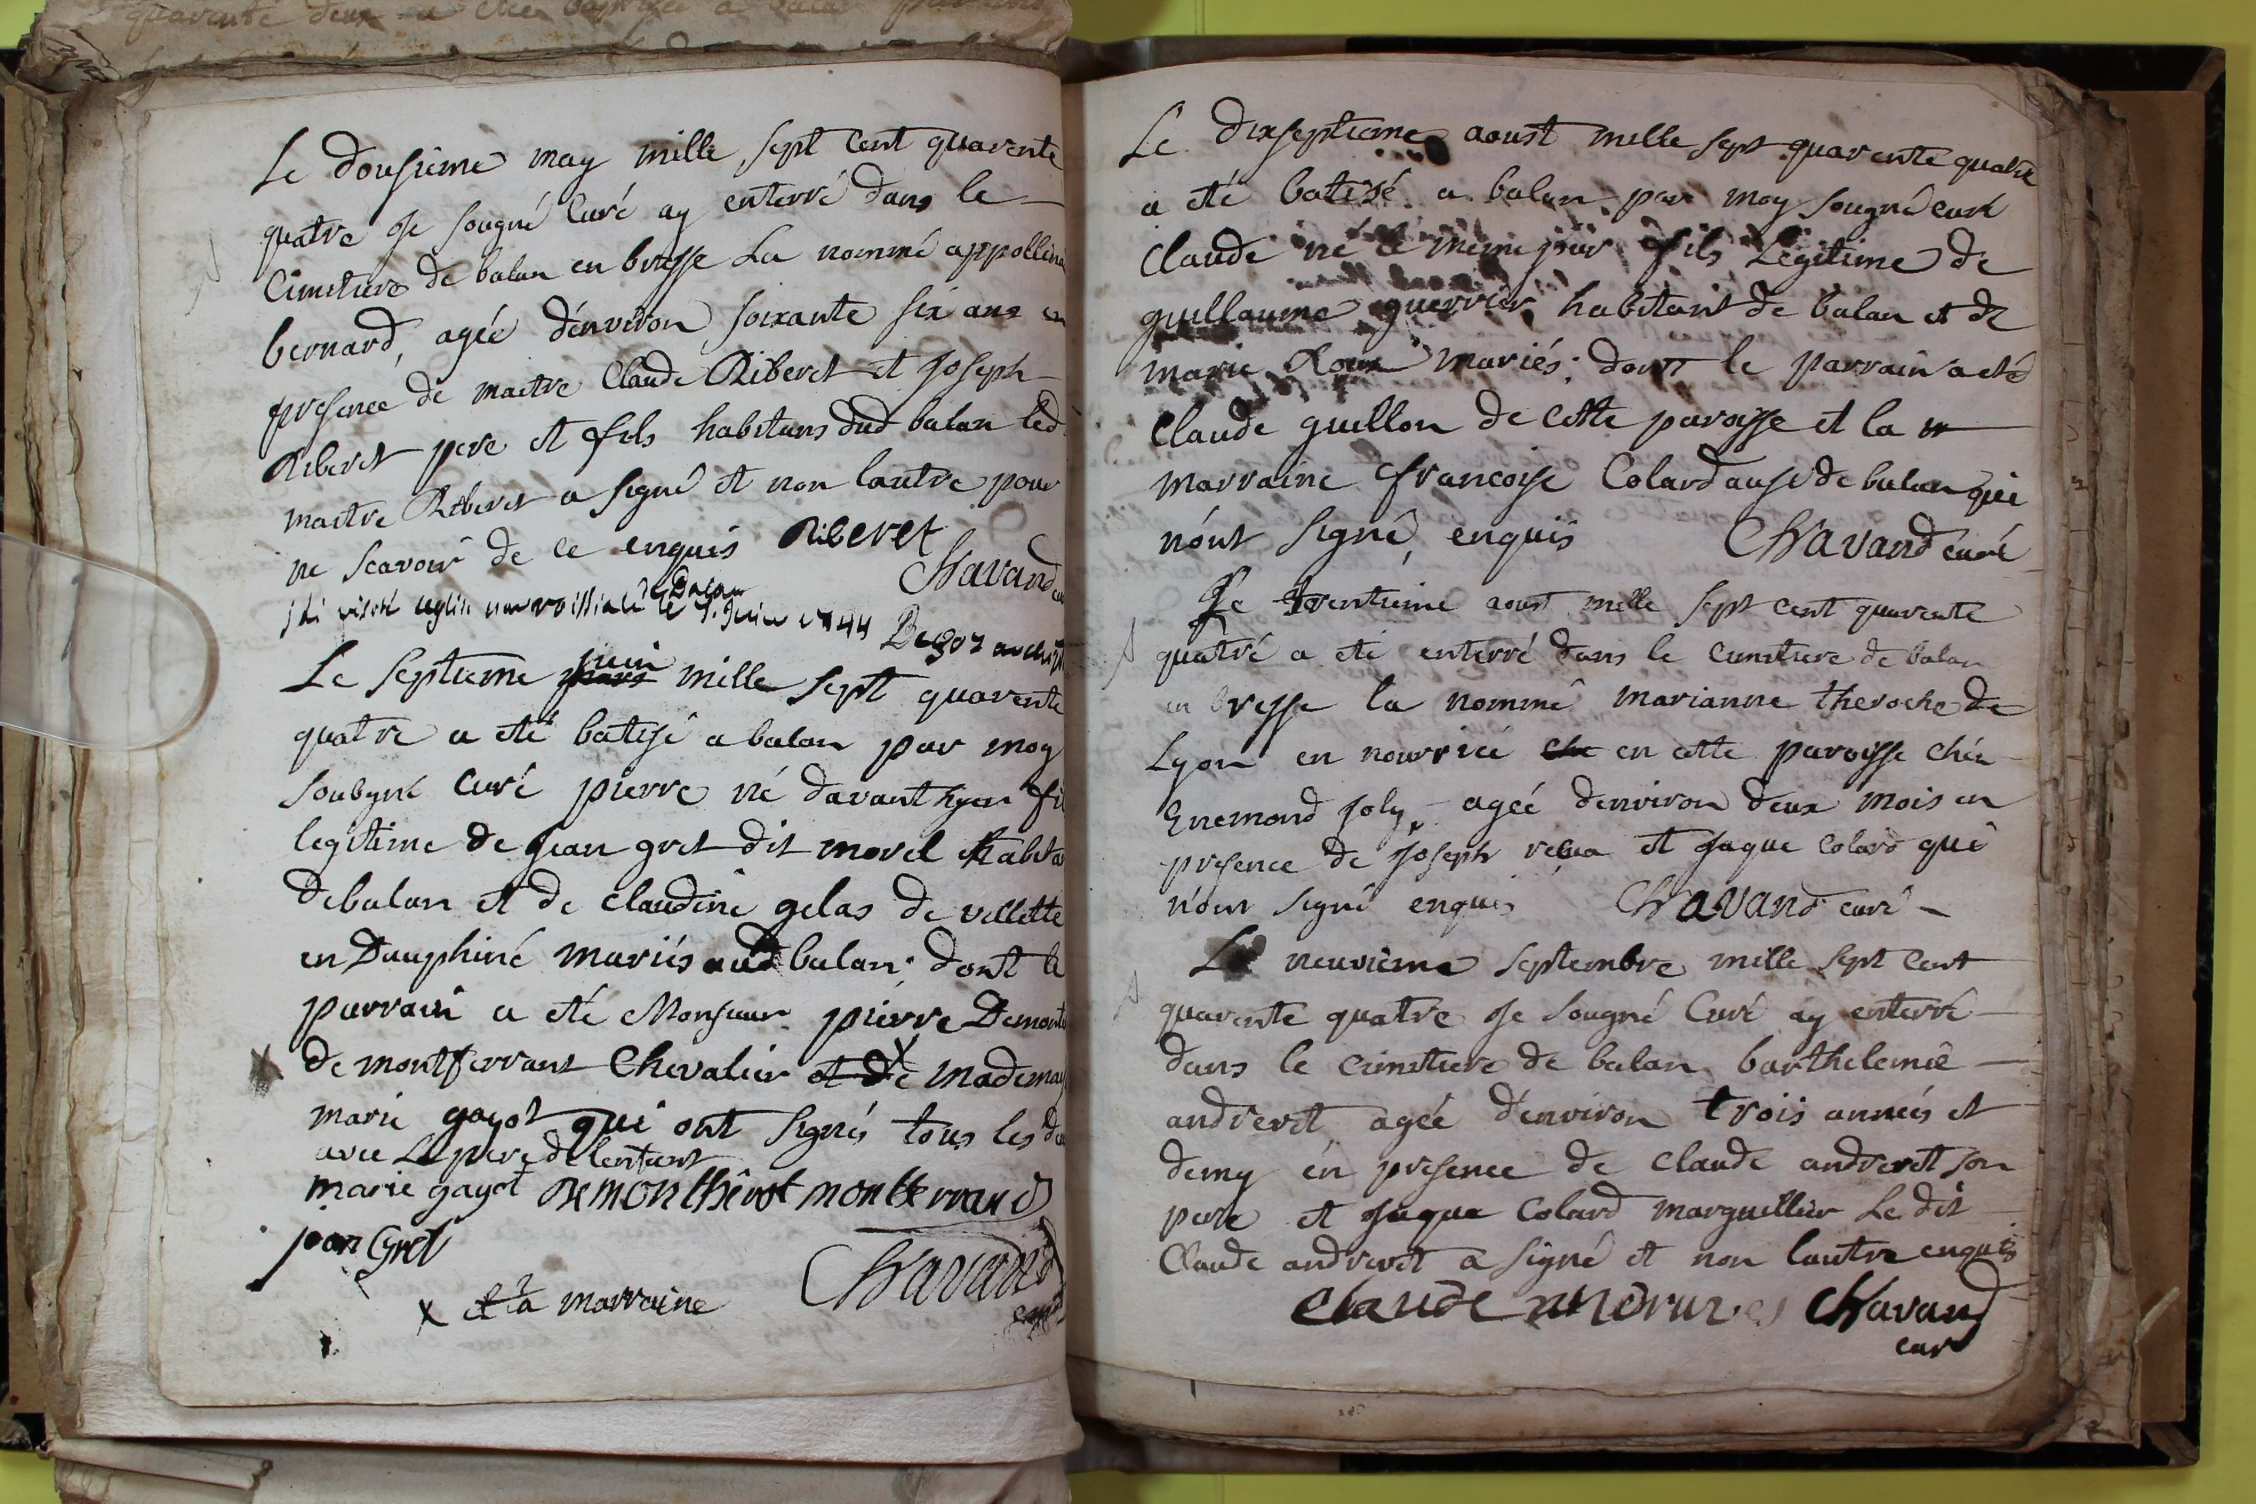 Le dousieme may mille sept cent quarente
quatre je sougné Curé ay enterré dans le
Cimetiere de balan en bresse La nommé appolline
bernard, agée d'environ soixante six ans en
presence de maitre Claude Riberet et joseph
Riberet pere et fils habitans dud balan led
maitre Riberet a signé et non lautre pour
ne scavoir de ce enquis Riberet
Chavand
de Balan
j'ai visité leglise parroissiale le 1. Juin 1744
Le septieme juin mille sept quarente
quatre a été batisé a balan par moy
soubgné Curé pierre né davanthyer fi
legitime de jean gret dit morel habita
debalan et de claudine gelas de villette
en Dauphiné mariés aud balan. dont le
parrain a été Monsieur pierre Demont
de montferrant Chevalier et de X mademai
marie gayot qui ont signés tous les
avec Le pere de lenfant
marie gayot Demonthérot montferrand
jean Gret
Chavand
X et la marraine
curé
Le dixseptieme aoust mille sept quarente quatre
a été batisé a balan par moy sougné curé
Claude né le meme jour fils Legitime de
guillaume guerrier habitant de balan et de
marie Roux mariés. dont le parrain a eté
Claude guillon de cette paroisse et la m
marraine francoise Colard ausi de balan qui
n'ont signé, enquis Chavand curé
Le trentieme aoust mille sept cent quarente
quatre a eté enterré dans le cimetiere de balan
en bresse la nommé marianne theroche de
Lyon en nourricé che en cette paroisse chés
Enemond joly, agée denviron deux mois en
presence de joseph et jaque colard qui
n'ont signé enquis Chavand curé
Le neuvieme septembre mille sept cent
quarente quatre je sougné Curé ay enterré
dans le cimetiere de balan barthelemie
andreret, agée d'environ trois annéés et
demy en presence de claude andreret son
pere et jaque Colard marguillier Le dit
Claude andreret a signé et non lautre enquis
Claude Chavand
cur